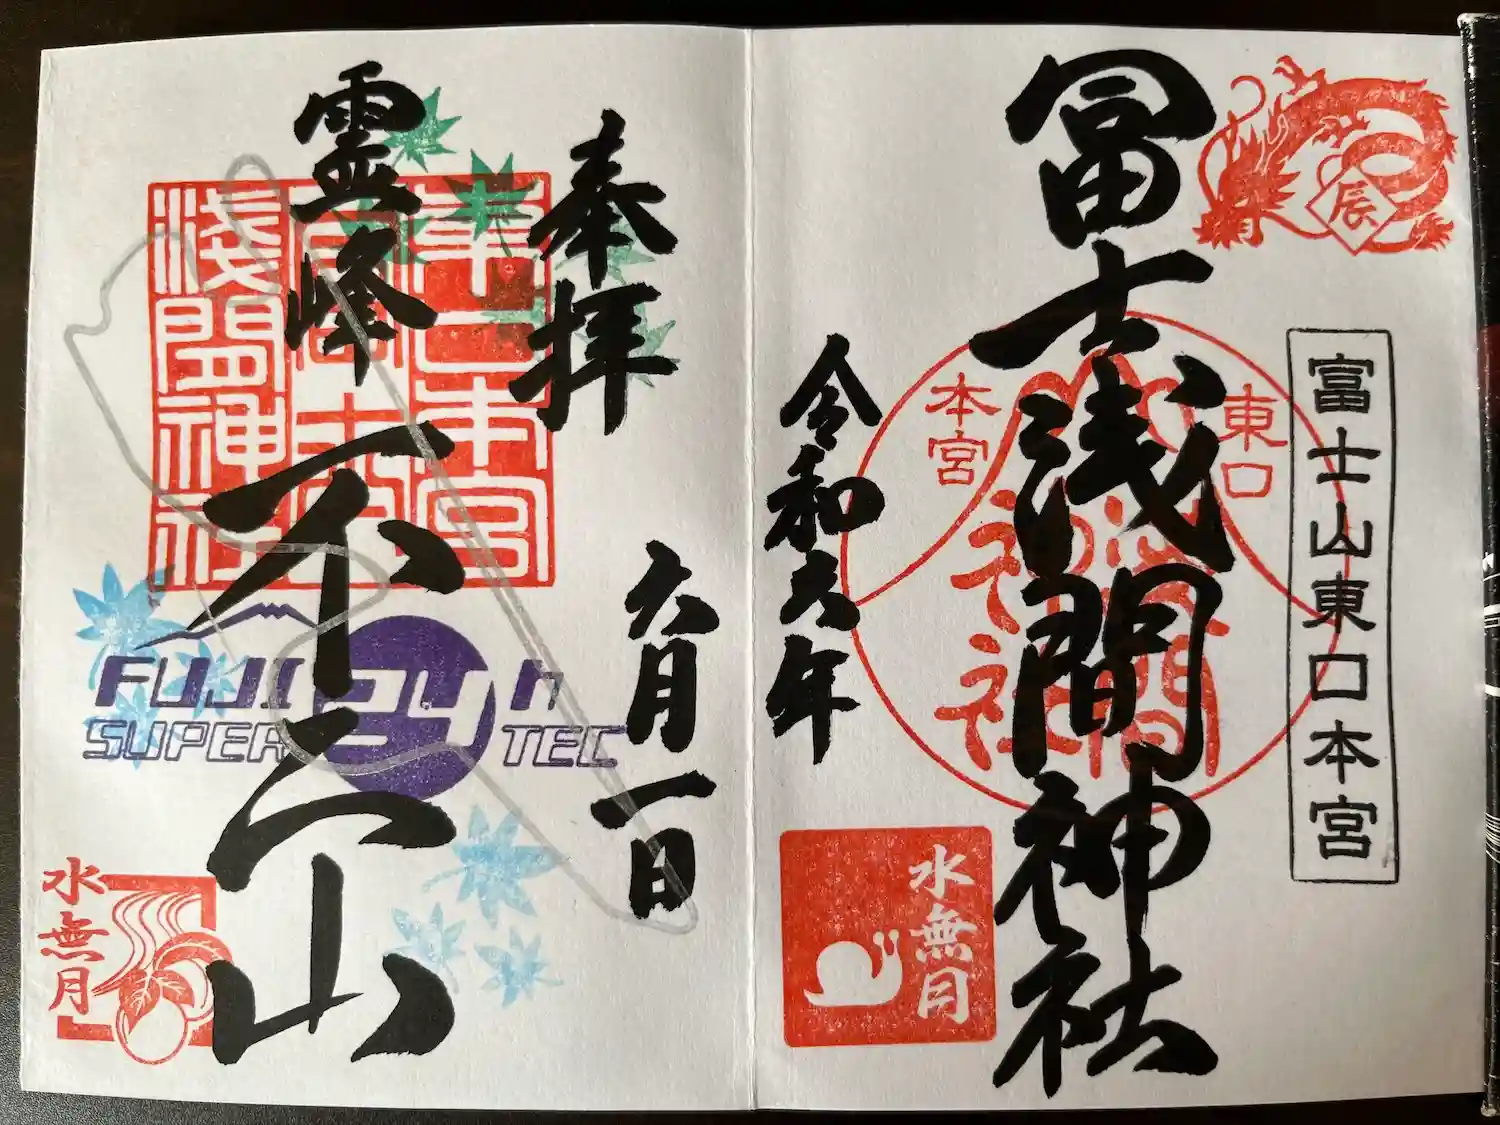 辰
富士山東口本宮
冨士浅間神社
東口
本宮
浅間
神社
令和六年
水無月
奉拝
六月一日
霊峰
不二山
東口本宮
冨士
淺間神社
FUJI 24h
SUPER TEC
水無月